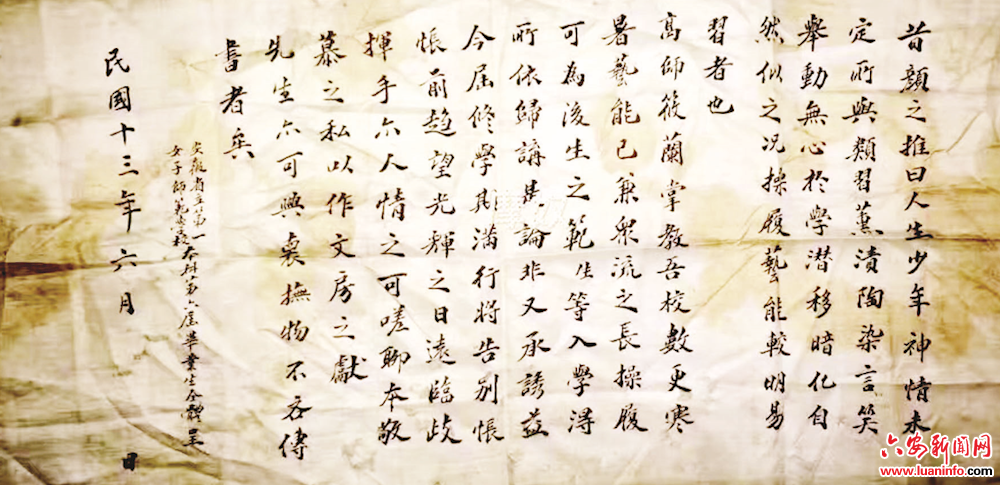 昔顏之推曰人生少年神情未
定所與類習薰漬陶染言笑
舉動無心於學潛移暗化自
然似之况操履藝能較明易
習者也
高師筱蘭掌教吾校數更寒
暑藝能已兼衆流之長操履
可為後生之範生等入學得
所依歸講畫論非又承誘益
今屆修學期滿行將告別悵
悵前趨望光輝之日遠臨歧
揮手亦人情之可嗟聊本敬
慕之私以作文房之獻
先生亦可興衷撫物不吝傳
書者矣
安徽省立第一
女子師範學校
本科第六屆畢業生全體呈
民國十三年六月 日
六安新闻网
www.luaninfo.com